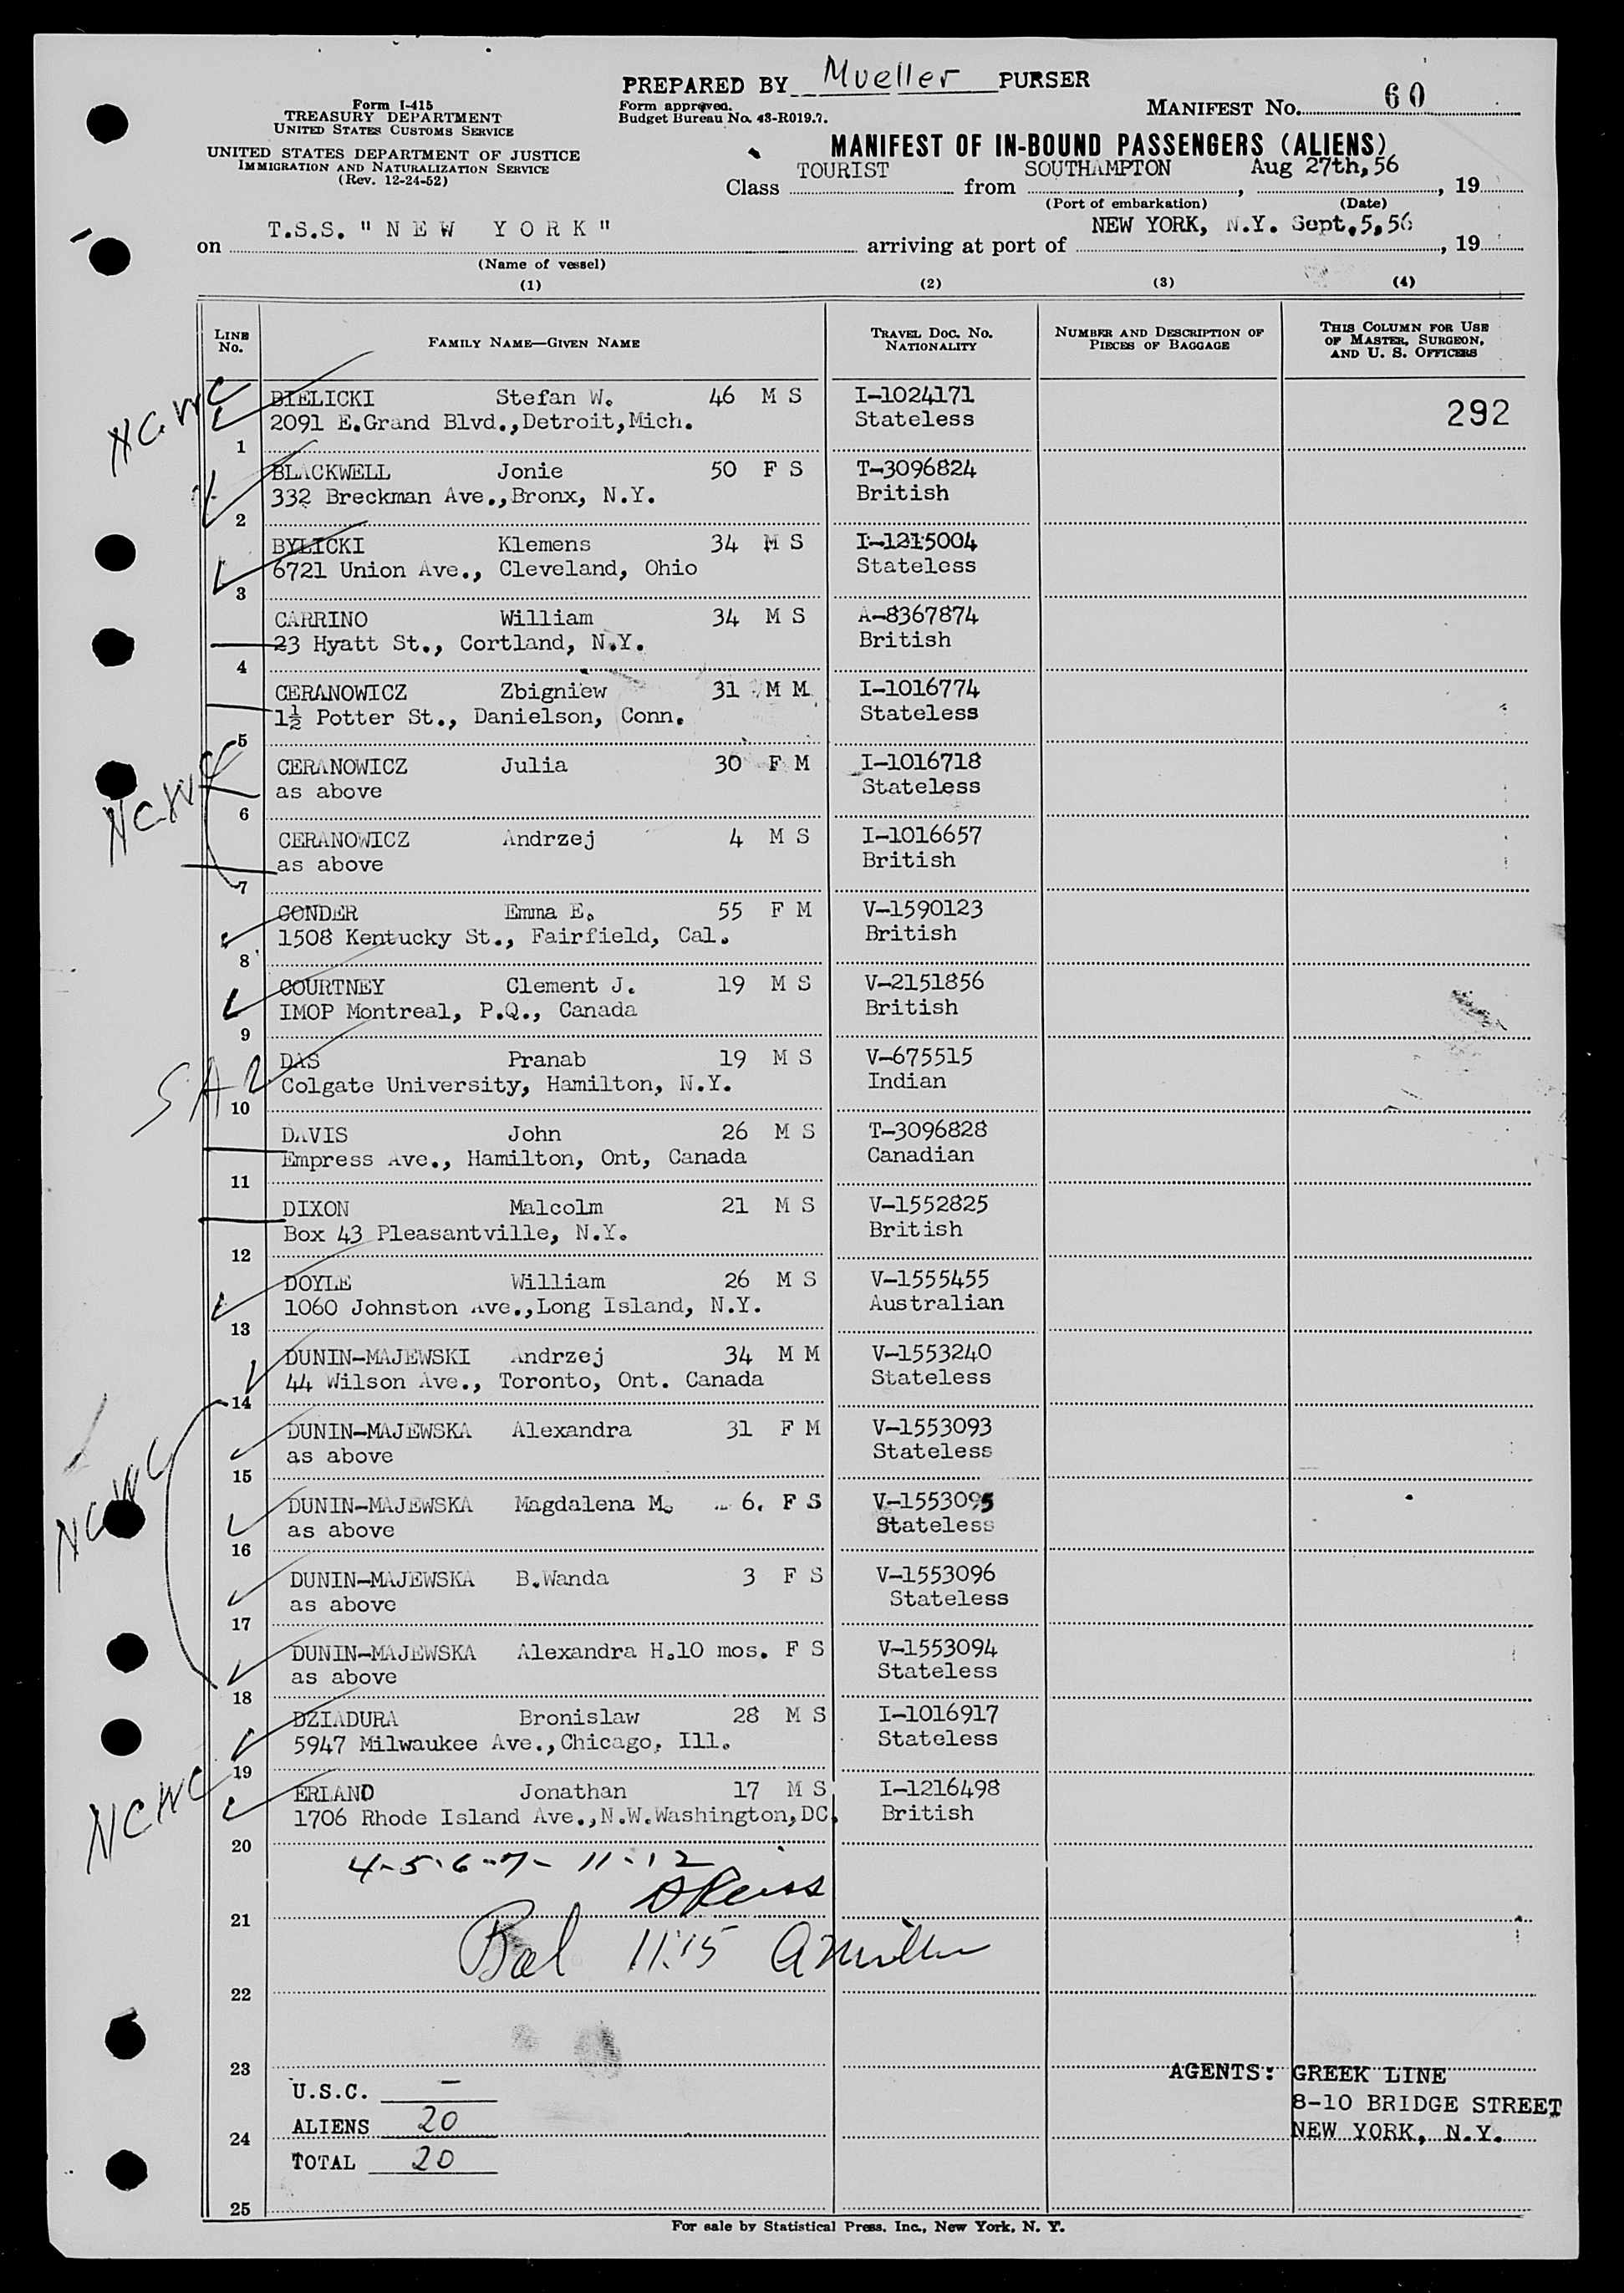 PREPARED BY Mueller PURSER
Form approved.
Budget Bureau No. 43-R019.7.
MANIFEST No. 60
Form I-415
TREASURY DEPARTMENT
UNITED STATES CUSTOMS SERVICE
UNITED STATES DEPARTMENT OF JUSTICE
IMMIGRATION AND NATURALIZATION SERVICE
(Rev. 12-24-52)
MANIFEST OF IN-BOUND PASSENGERS (ALIENS)
Class TOURIST from SOUTHAMPTON, Aug 27th, 56, 19
(Port of embarkation) (Date)
on T.S.S. "NEW YORK" arriving at port of NEW YORK, N.Y. Sept.5,56, 19
(Name of vessel)
(1) (2) (3) (4)
LINE No. FAMILY NAME—GIVEN NAME TRAVEL DOC. NO. NATIONALITY NUMBER AND DESCRIPTION OF PIECES OF BAGGAGE THIS COLUMN FOR USE OF MASTER, SURGEON, AND U. S. OFFICERS
BIELICKI Stefan W. 46 M S I-1024171
2091 E.Grand Blvd.,Detroit,Mich. Stateless 292
1
BLACKWELL Jonie 50 F S T-3096824
332 Breckman Ave.,Bronx, N.Y. British
2
BYLICKI Klemens 34 M S I-1215004
6721 Union Ave., Cleveland, Ohio Stateless
3
CARRINO William 34 M S A-8367874
23 Hyatt St., Cortland, N.Y. British
4
CERANOWICZ Zbigniew 31 M M I-1016774
1½ Potter St., Danielson, Conn. Stateless
5
NCWC
CERANOWICZ Julia 30 F M I-1016718
as above Stateless
6
CERANOWICZ Andrzej 4 M S I-1016657
as above British
7
CONDER Emma E. 55 F M V-1590123
1508 Kentucky St., Fairfield, Cal. British
8
COURTNEY Clement J. 19 M S V-2151856
IMOP Montreal, P.Q., Canada British
9
SA
DAS Pranab 19 M S V-675515
Colgate University, Hamilton, N.Y. Indian
10
DAVIS John 26 M S T-3096828
Empress Ave., Hamilton, Ont, Canada Canadian
11
DIXON Malcolm 21 M S V-1552825
Box 43 Pleasantville, N.Y. British
12
DOYLE William 26 M S V-1555455
1060 Johnston Ave.,Long Island, N.Y. Australian
13
DUNIN-MAJEWSKI Andrzej 34 M M V-1553240
44 Wilson Ave., Toronto, Ont. Canada Stateless
14
DUNIN-MAJEWSKA Alexandra 31 F M V-1553093
as above Stateless
15
NCWC
DUNIN-MAJEWSKA Magdalena M. 6. F S V-1553095
as above Stateless
16
DUNIN-MAJEWSKA B.Wanda 3 F S V-1553096
as above Stateless
17
DUNIN-MAJEWSKA Alexandra H.10 mos. F S V-1553094
as above Stateless
18
DZIADURA Bronislaw 28 M S I-1016917
5947 Milwaukee Ave.,Chicago, Ill. Stateless
19
NCWC
ERLAND Jonathan 17 M S I-1216498
1706 Rhode Island Ave.,N.W.Washington,DC. British
20
4-5-6-7-11-12
21
Bal 11:15
22
23
AGENTS: GREEK LINE
8-10 BRIDGE STREET
NEW YORK, N.Y.
U.S.C. —
ALIENS 20
24
TOTAL 20
25
For sale by Statistical Press, Inc., New York, N. Y.